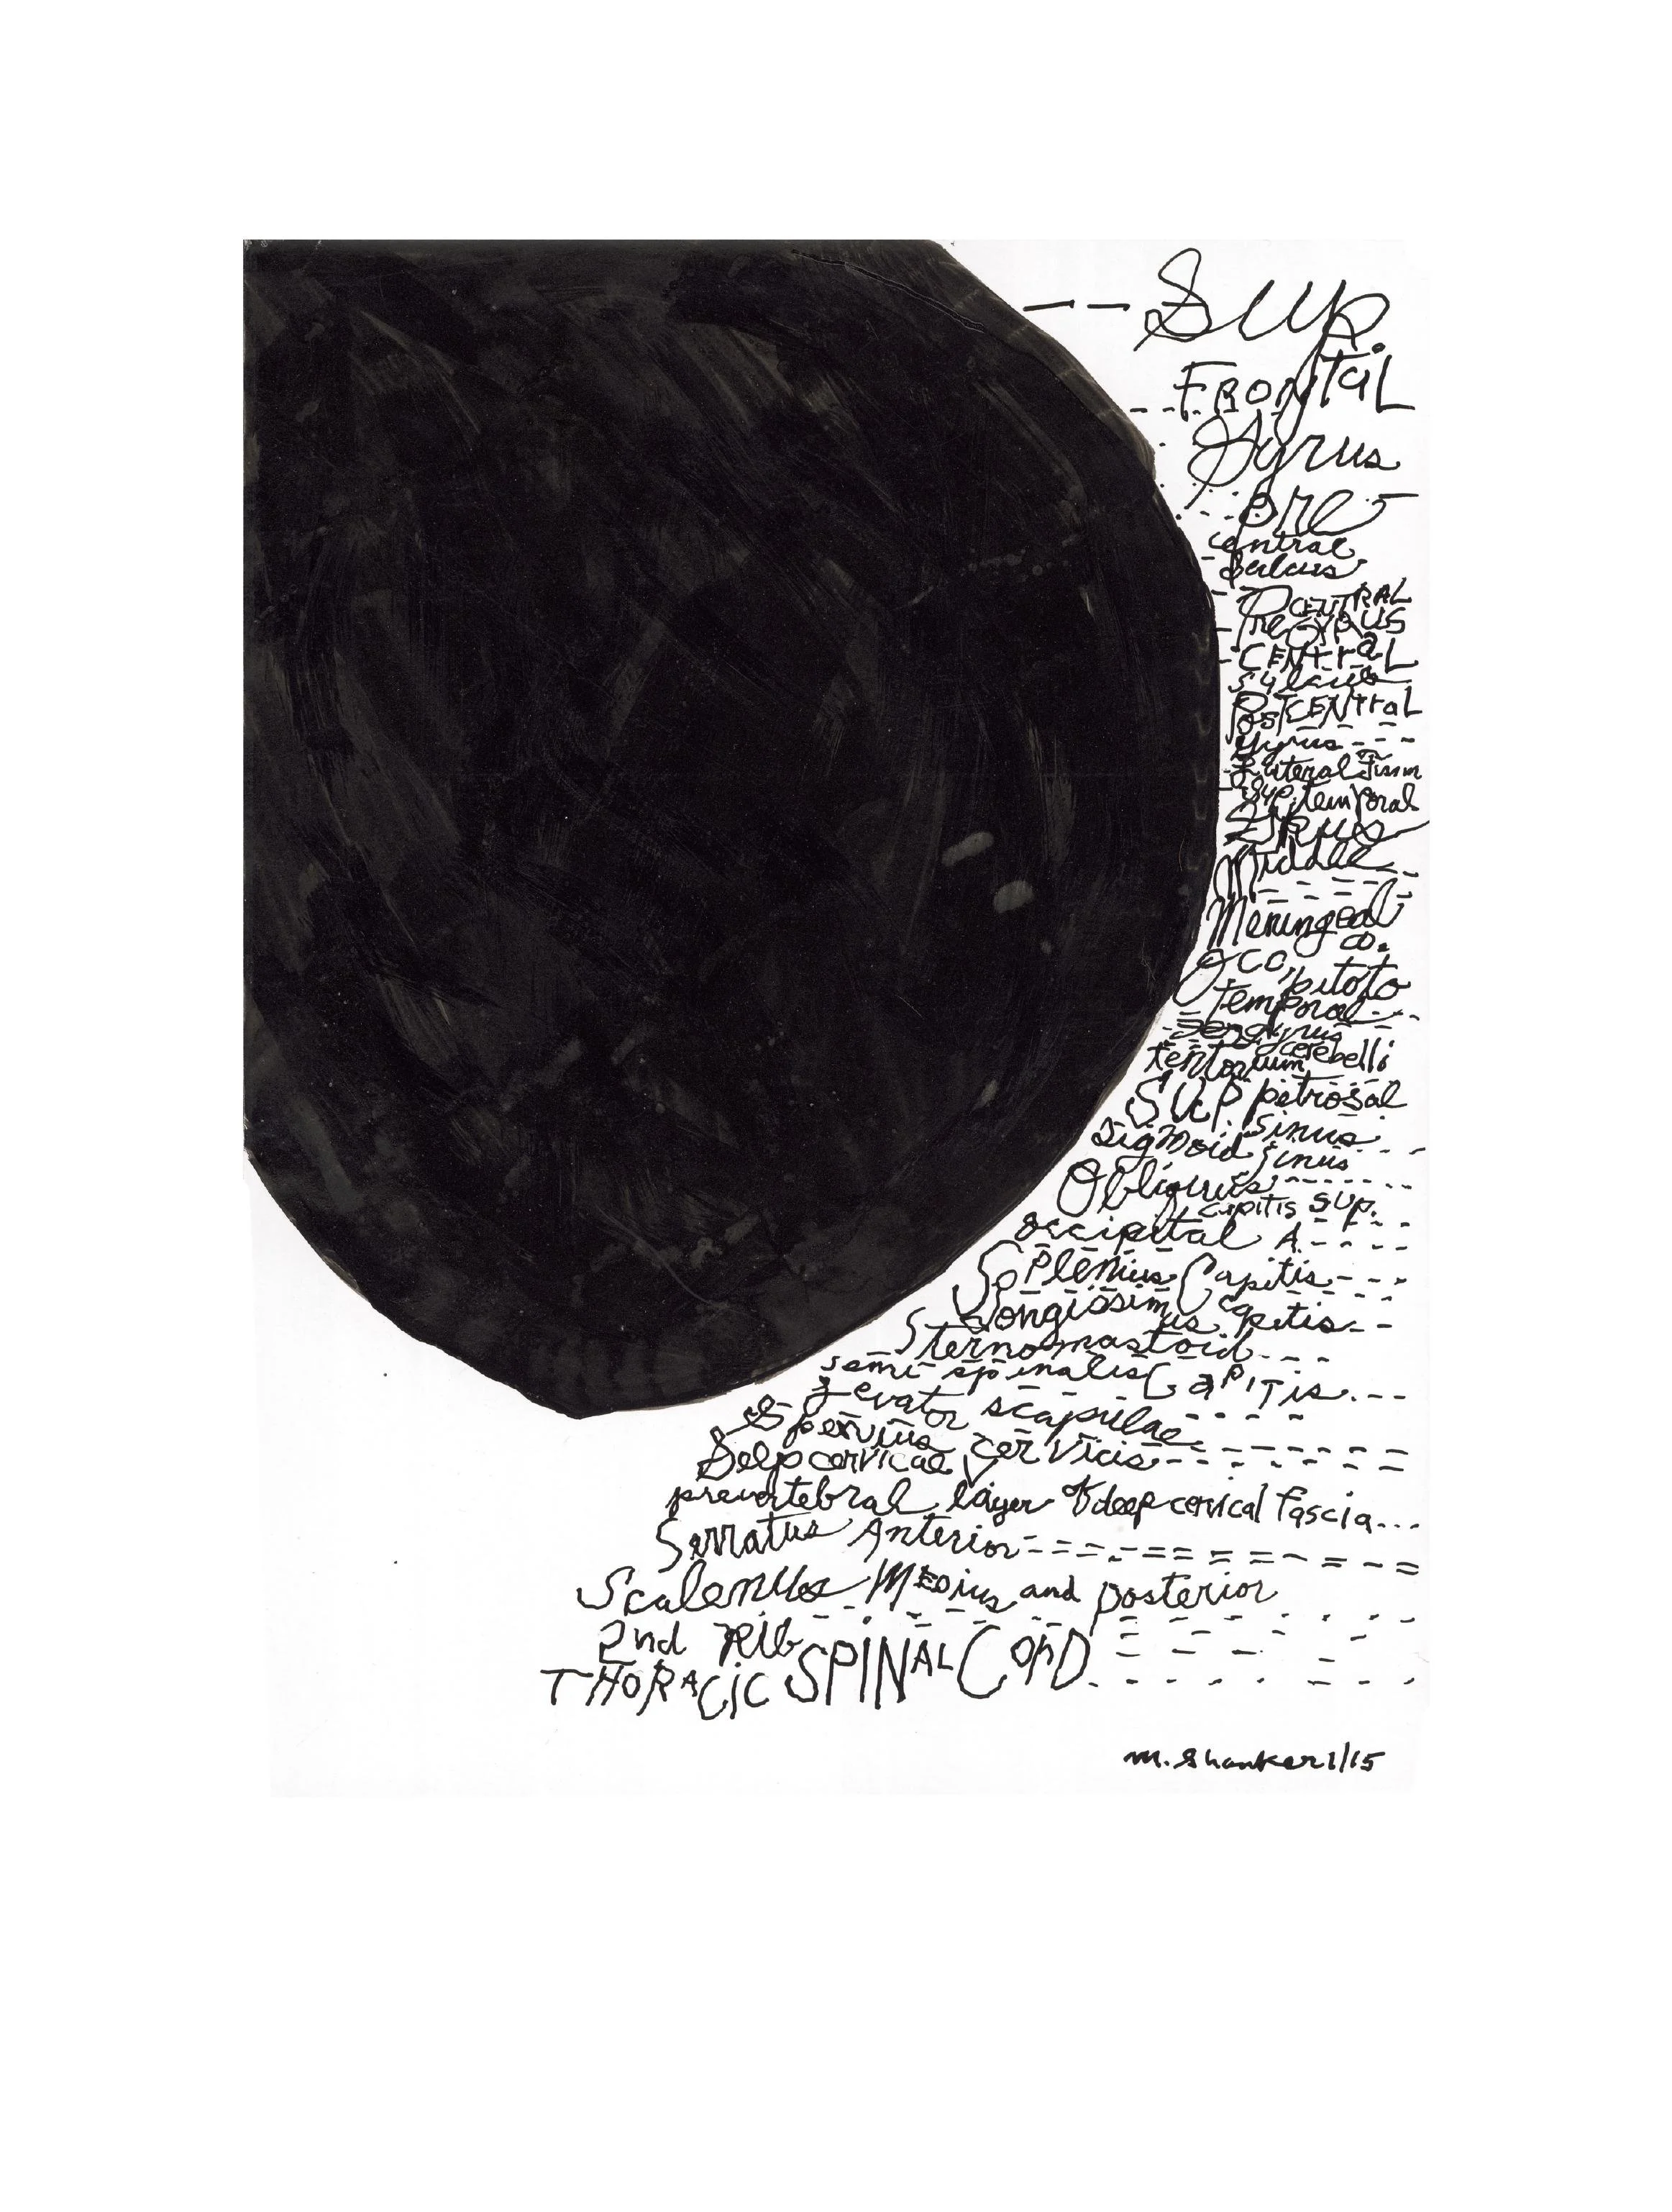 -- Sup.
FRONTaL
Gyrus
pre-
central
Sulcus
PreCENTRAL
GYRUS
CENTraL
Sulcus
PostCENTraL
Gyrus
Lateral Fissur
Sup. temporal
Gyrus
Middle
Meningeal
Occipitoto
temporal
gyrus
tentorium cerebelli
SUP. petrosal
Sinus
Sigmoid Sinus
Obliquus
capitis sup.
occipital A.
Splenius Capitis
Longissimus capitis
Sternomastoid
semi-spinalis CaPITis.
Levator scapulae
Splenius Cervicis
Deep cervical V
prevertebral layer of deep cervical fascia...
Serratus Anterior
Scalenus MEDius and posterior
2nd Rib
THORACiC SPINAL CORD
M. Shanker 1/15